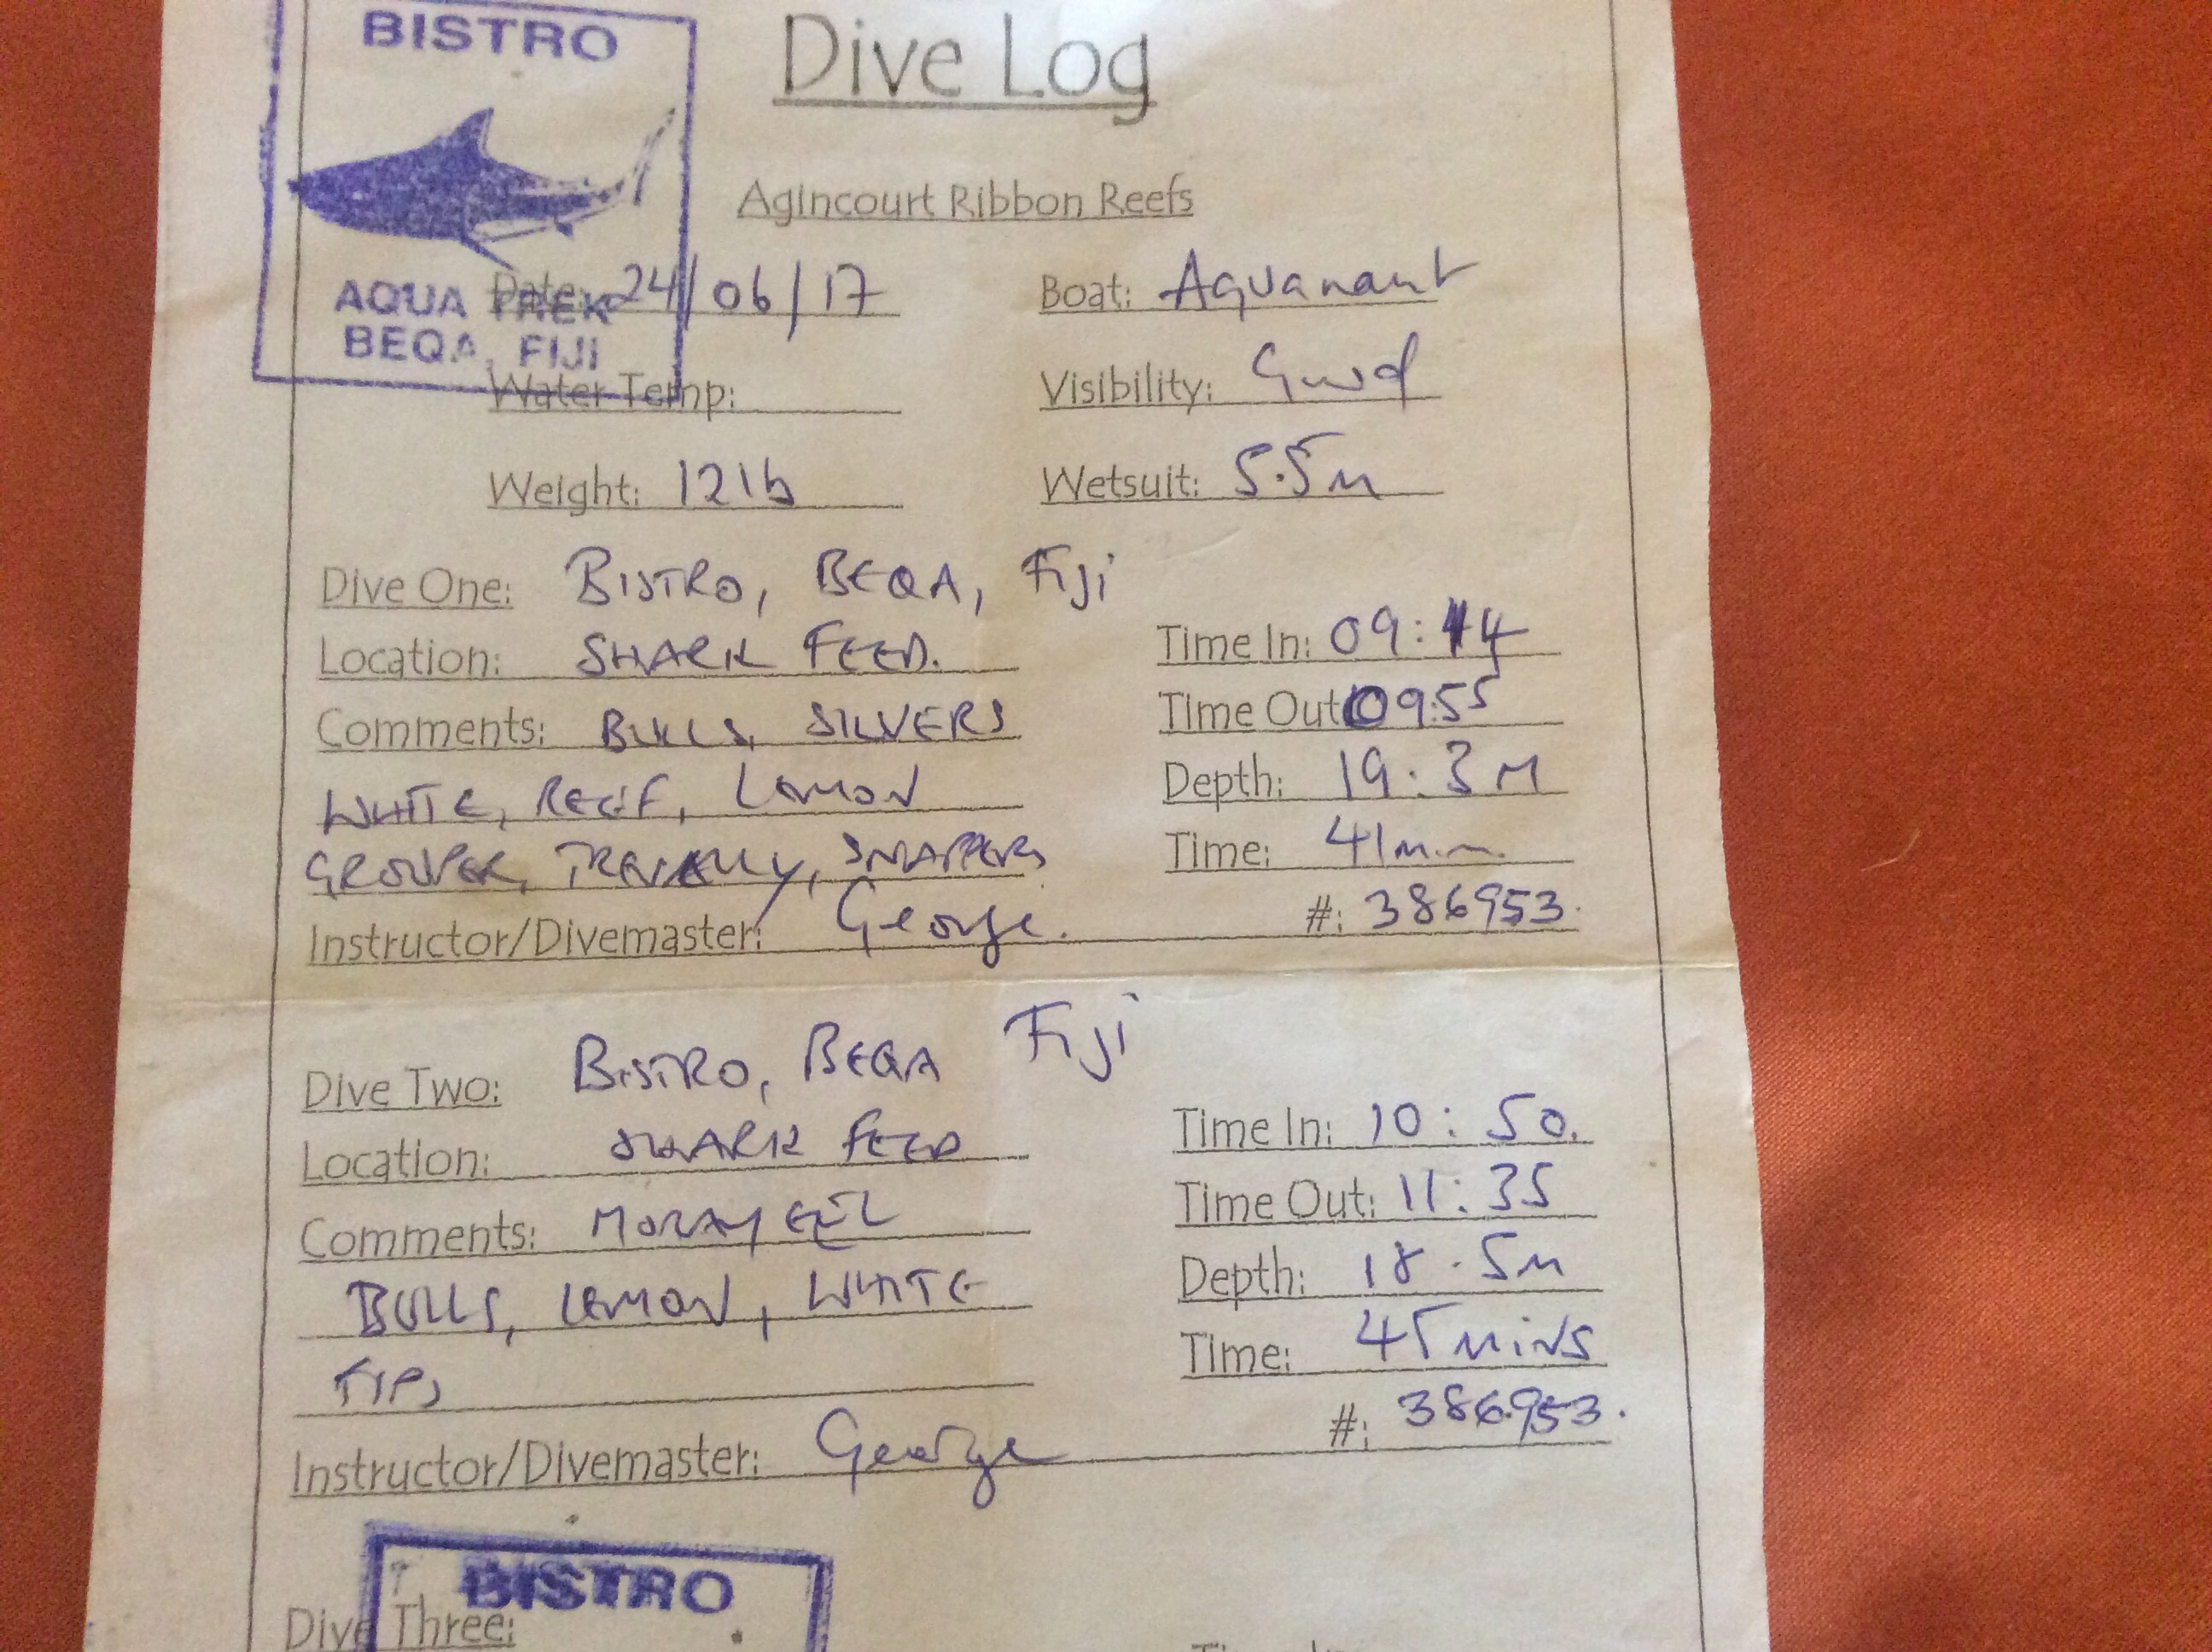 BISTRO
Dive Log
Agincourt Ribbon Reefs
AQUA TREK
BEQA, FIJI
Date: 24/06/17 Boat: Aquanaut
Water Temp: Visibility: Good
Weight: 12lb Wetsuit: 5.5m
Dive One: BISTRO, BEQA, Fiji
Location: SHARK FEED. Time In: 09:14
Comments: BULLS, SILVERS Time Out: 09:55
WHITE, REEF, LEMON Depth: 19.3M
GROUPER, TREVALLY, SNAPPERS Time: 41min
Instructor/Divemaster: George. #: 386953.
Dive Two: BISTRO, BEQA Fiji
Location: SHARK FEED Time In: 10:50.
Comments: MORAY EEL Time Out: 11:35
BULLS, LEMON, WHITE Depth: 18.5m
TIPS Time: 45 mins
Instructor/Divemaster: George #: 386953.
BISTRO
Dive Three: